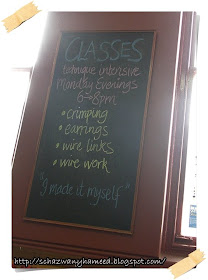 CLASSES
technique intensive
Monday Evenings
6→8pm
• crimping
• earrings
• wire links
• wire work
"I made it myself"
http://schazwanyhameed.blogspot.com/